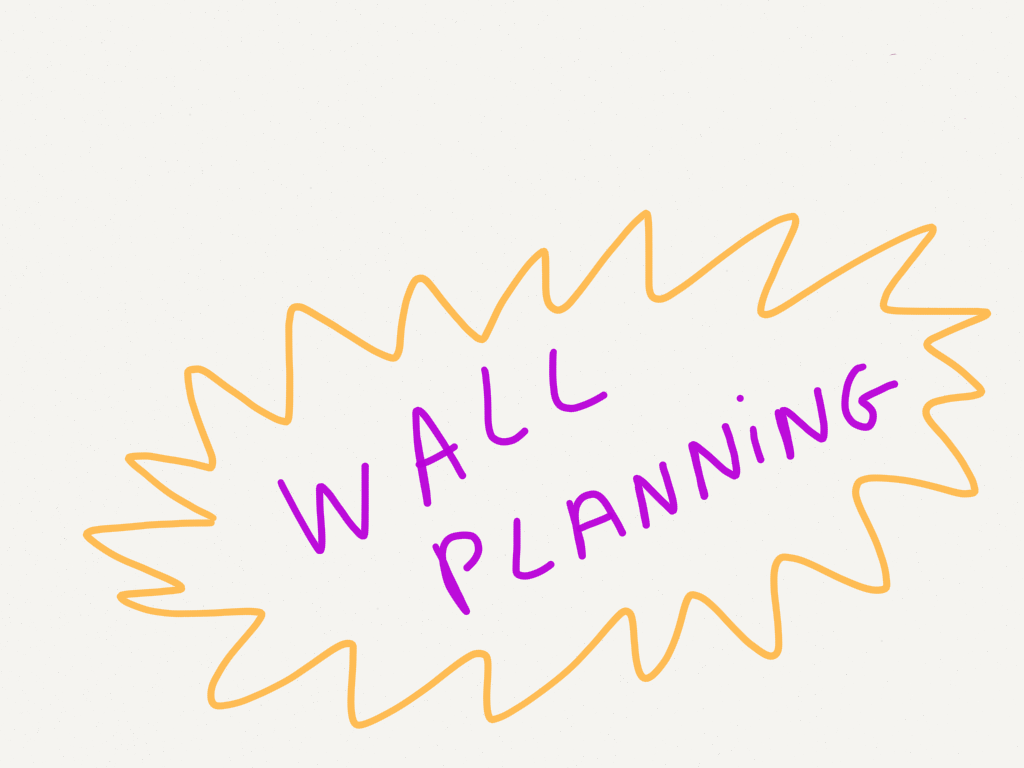 WALL
PLANNiNG